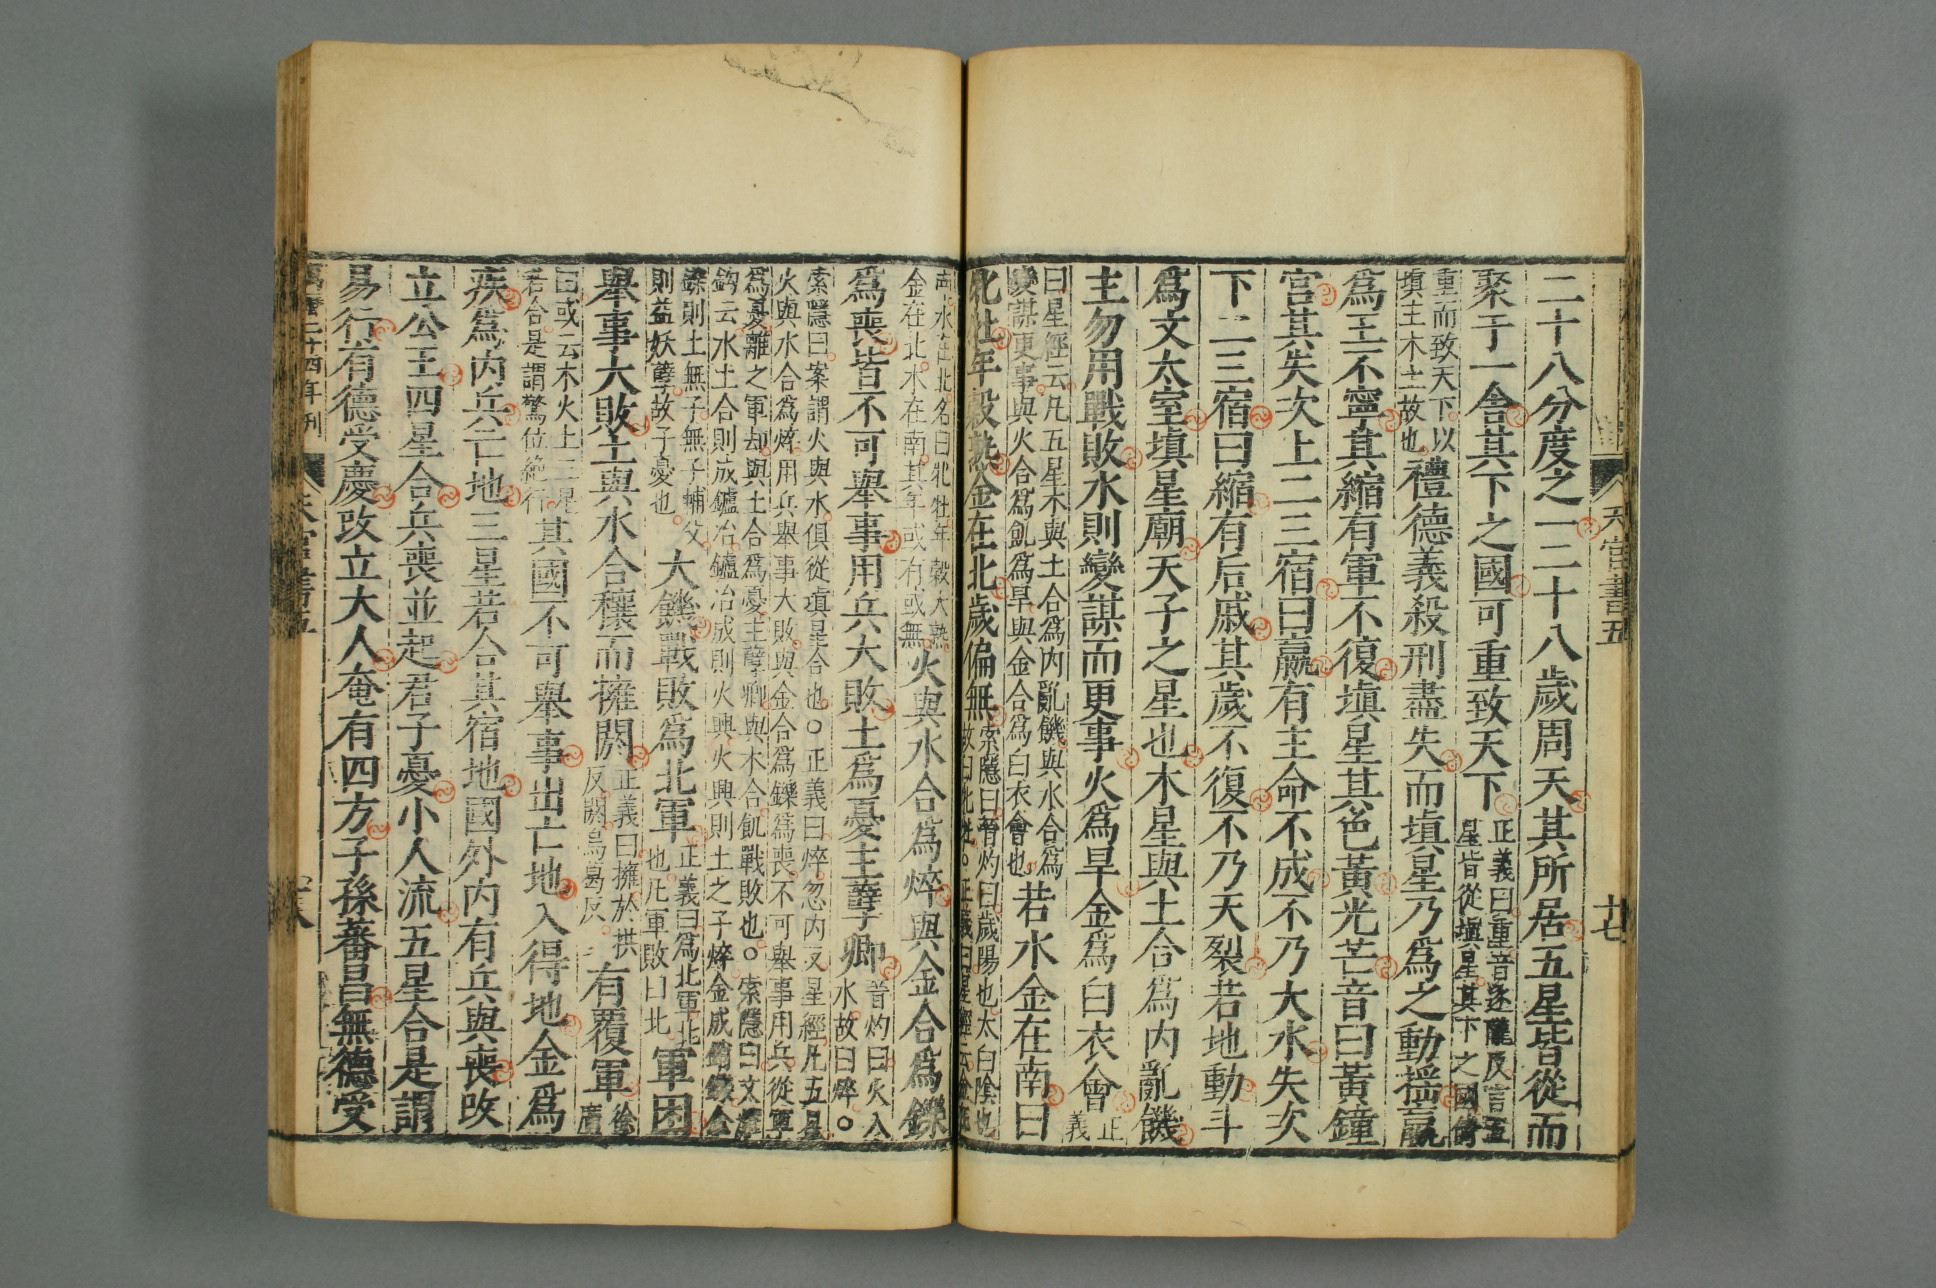 天官書五
廿七
二十八分度之一二十八歲周天其所居五星皆從而
聚于一舍其下之國可重致天下
正義曰重音逐隴反言五
星皆從填星其下之國倚
重而致天下以
填主木土故也
禮德義殺刑盡失而填星乃爲之動揺贏
爲王不寧其縮有軍不復填星其色黃光芒音曰黃鐘
宮其失次上二三宿曰贏有主命不成不乃大水失次
下二三宿曰縮有后戚其歲不復不乃天裂若地動斗
爲文太室填星廟天子之星也木星與土合爲内亂饑
主勿用戰敗水則變謀而更事火爲旱金爲白衣會
正
義
曰星經云凡五星木與土合爲内亂饑與水合爲
變謀更事與火合爲飢爲旱與金合爲白衣會也
若水金在南曰
牝牡年穀熟金在北歲偏無
索隱曰晉灼曰歲陽也太白陰也
故曰牝牡。正義曰星經云金在
南木在北名曰牝牡年穀大熟
金在北木在南其年或有或無
火與水合爲焠與金合爲鑠
爲喪皆不可舉事用兵大敗土爲憂主孽卿
晉灼曰火入
水故曰焠。
索隱曰案謂火與水俱從填星合也。正義曰焠忽内反星經凡五星
火與水合爲焠用兵舉事大敗與金合爲鑠爲喪不可舉事用兵從軍
爲憂離之軍却與土合爲憂主孽卿與木合飢戰敗也。索隱曰文耀
鉤云水土合則成鑪冶鑪冶成則火興火興則土之子焠金成銷鑠金
鑠則土無子無子輔父
則益妖孽故子憂也
大饑戰敗爲北軍
正義曰爲北軍北
也凡軍敗曰北
軍困
舉事大敗土與水合穰而擁閼
正義曰擁於拱
反閼烏葛反
有覆軍
徐
廣
曰或云木火土三星
若合是謂驚位絶行
其國不可舉事出亡地入得地金爲
疾爲内兵亡地三星若合其宿地國外内有兵與喪改
立公王四星合兵喪並起君子憂小人流五星合是謂
易行有德受慶改立大人奄有四方子孫蕃昌無德受
萬曆二十四年刊
天官書五